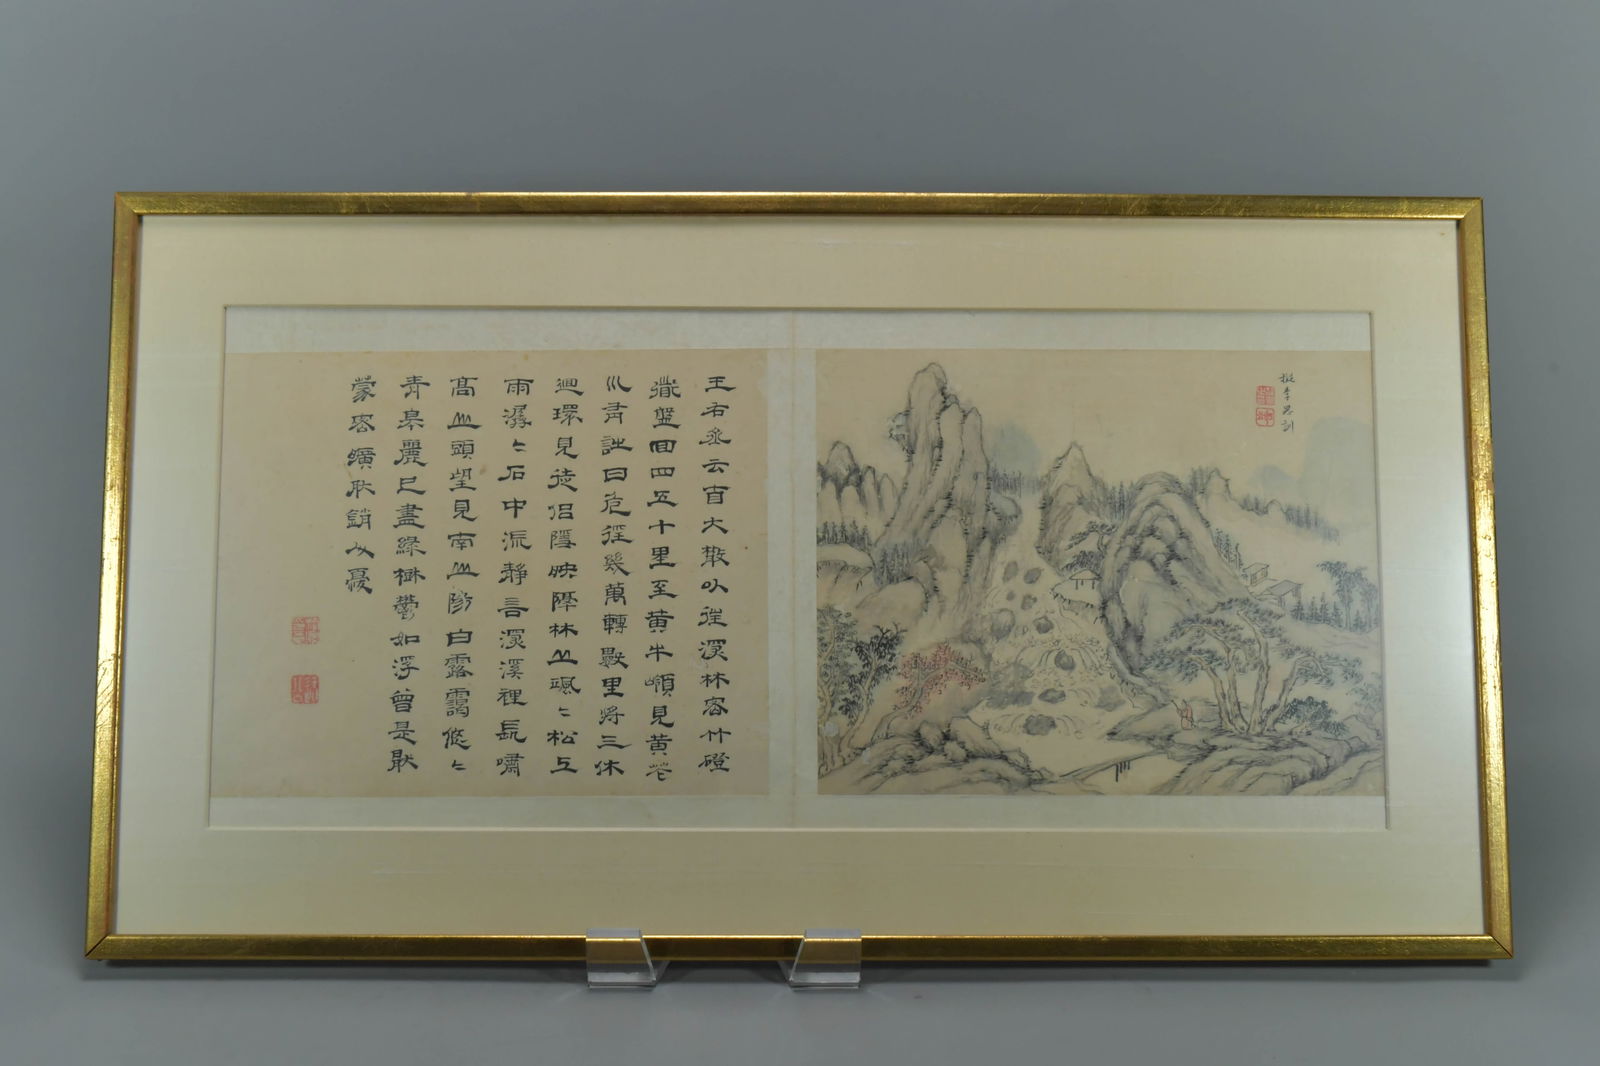 擬李思訓
王右丞云自大散以往深林密竹磴
道盤回四五十里至黃牛嶺見黃花
川有詩曰危徑幾萬轉數里將三休
迴環見徒侶隱映隔林丘颯〻松上
雨潺〻石中流靜言深溪裡長嘯
高山頭望見南山陽白露靄悠〻
青皋麗已盡綠樹鬱如浮曾是厭
蒙密曠然銷人憂